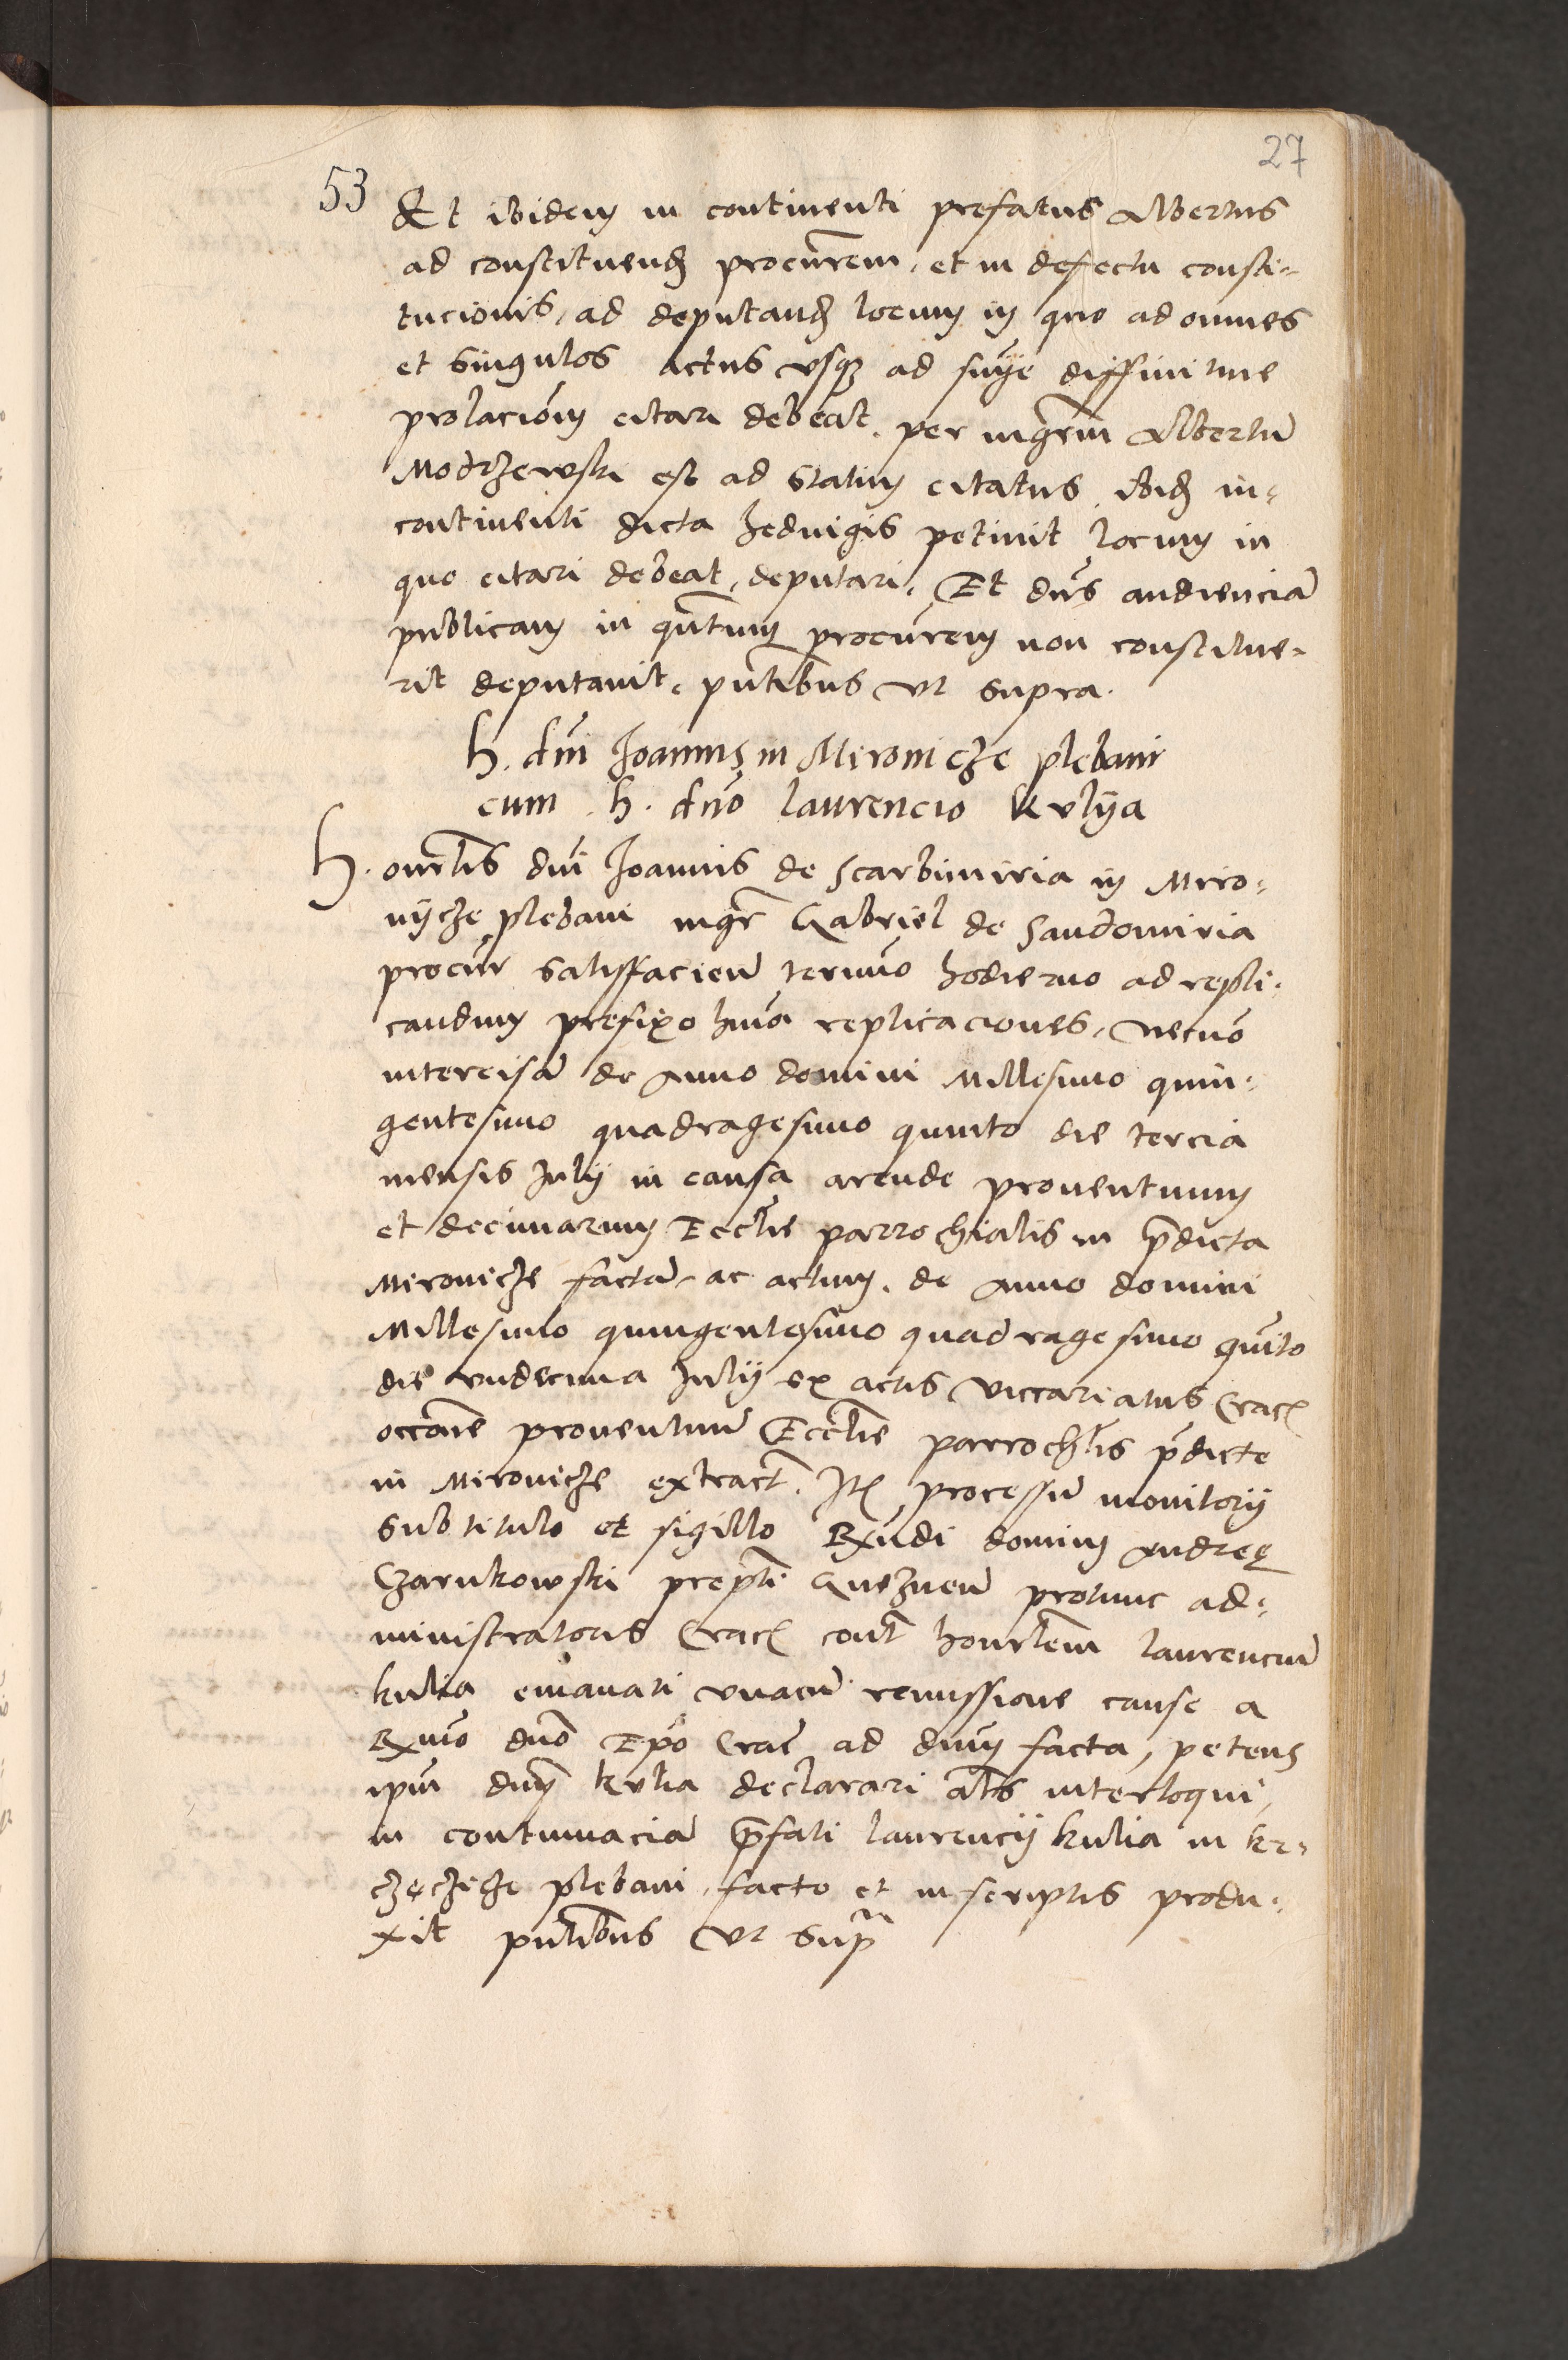 27
53
Et ibidem in continenti prefatus Albertus
ad constituend procurem, et in defectu consti-
tucionis, ad deputand locum in quo ad omnes
et singulos actus usq ad snye diffinitive
prolacionem citari debeat, per mgrm Albertu
Modrzewski est ad statim citatus, ibid in-
continenti dicta Hedvigis petivit locum in
quo citari debeat, deputari, Et dns audiencia
publicam in quntum procurem non constitue-
rit deputavit, pntibus ut supra.
H. dni Joannis in Mironicze plebani
cum h. dno Laurencio Kulya
H. onrlis dni Joannis de Scarbimiria in Miro-
nycze plebani mgr Gabriel de Sandomiria
procur satisfaciens termino hodierno ad repli-
candum prefixo hmoi replicaciones, necno
intercisa de Anno domini Millesimo quin-
gentesimo quadragesimo quinto die tercia
mensis July in causa arende proventuum
et decimarum Ecclie parrochialis in pdicta
Mironicze facta, ac actum, de Anno domini
Millesimo quingentesimo quadragesimo quito
die undecima July ex actis vicariatus Crac
occone proventuum Ecclie parrochlis pdicte
in Mironicze extract. Ite processu monitory
sub titulo et sigillo Rndi domini Andree
Czarnkowski prepti Gneznen protunc ad-
ministratoris Crac cont honrlem Laurenciu
Kulia emanati unacu remissione cause a
Rmo dno Epo Crac ad dnm facta, petens
ipm dnm Kulia declarari als interloqui,
in contumacia pfati Laurency Kulia in kr-
zczęczicze plebani, facto et in scriptis produ-
xit pntibus ut supra